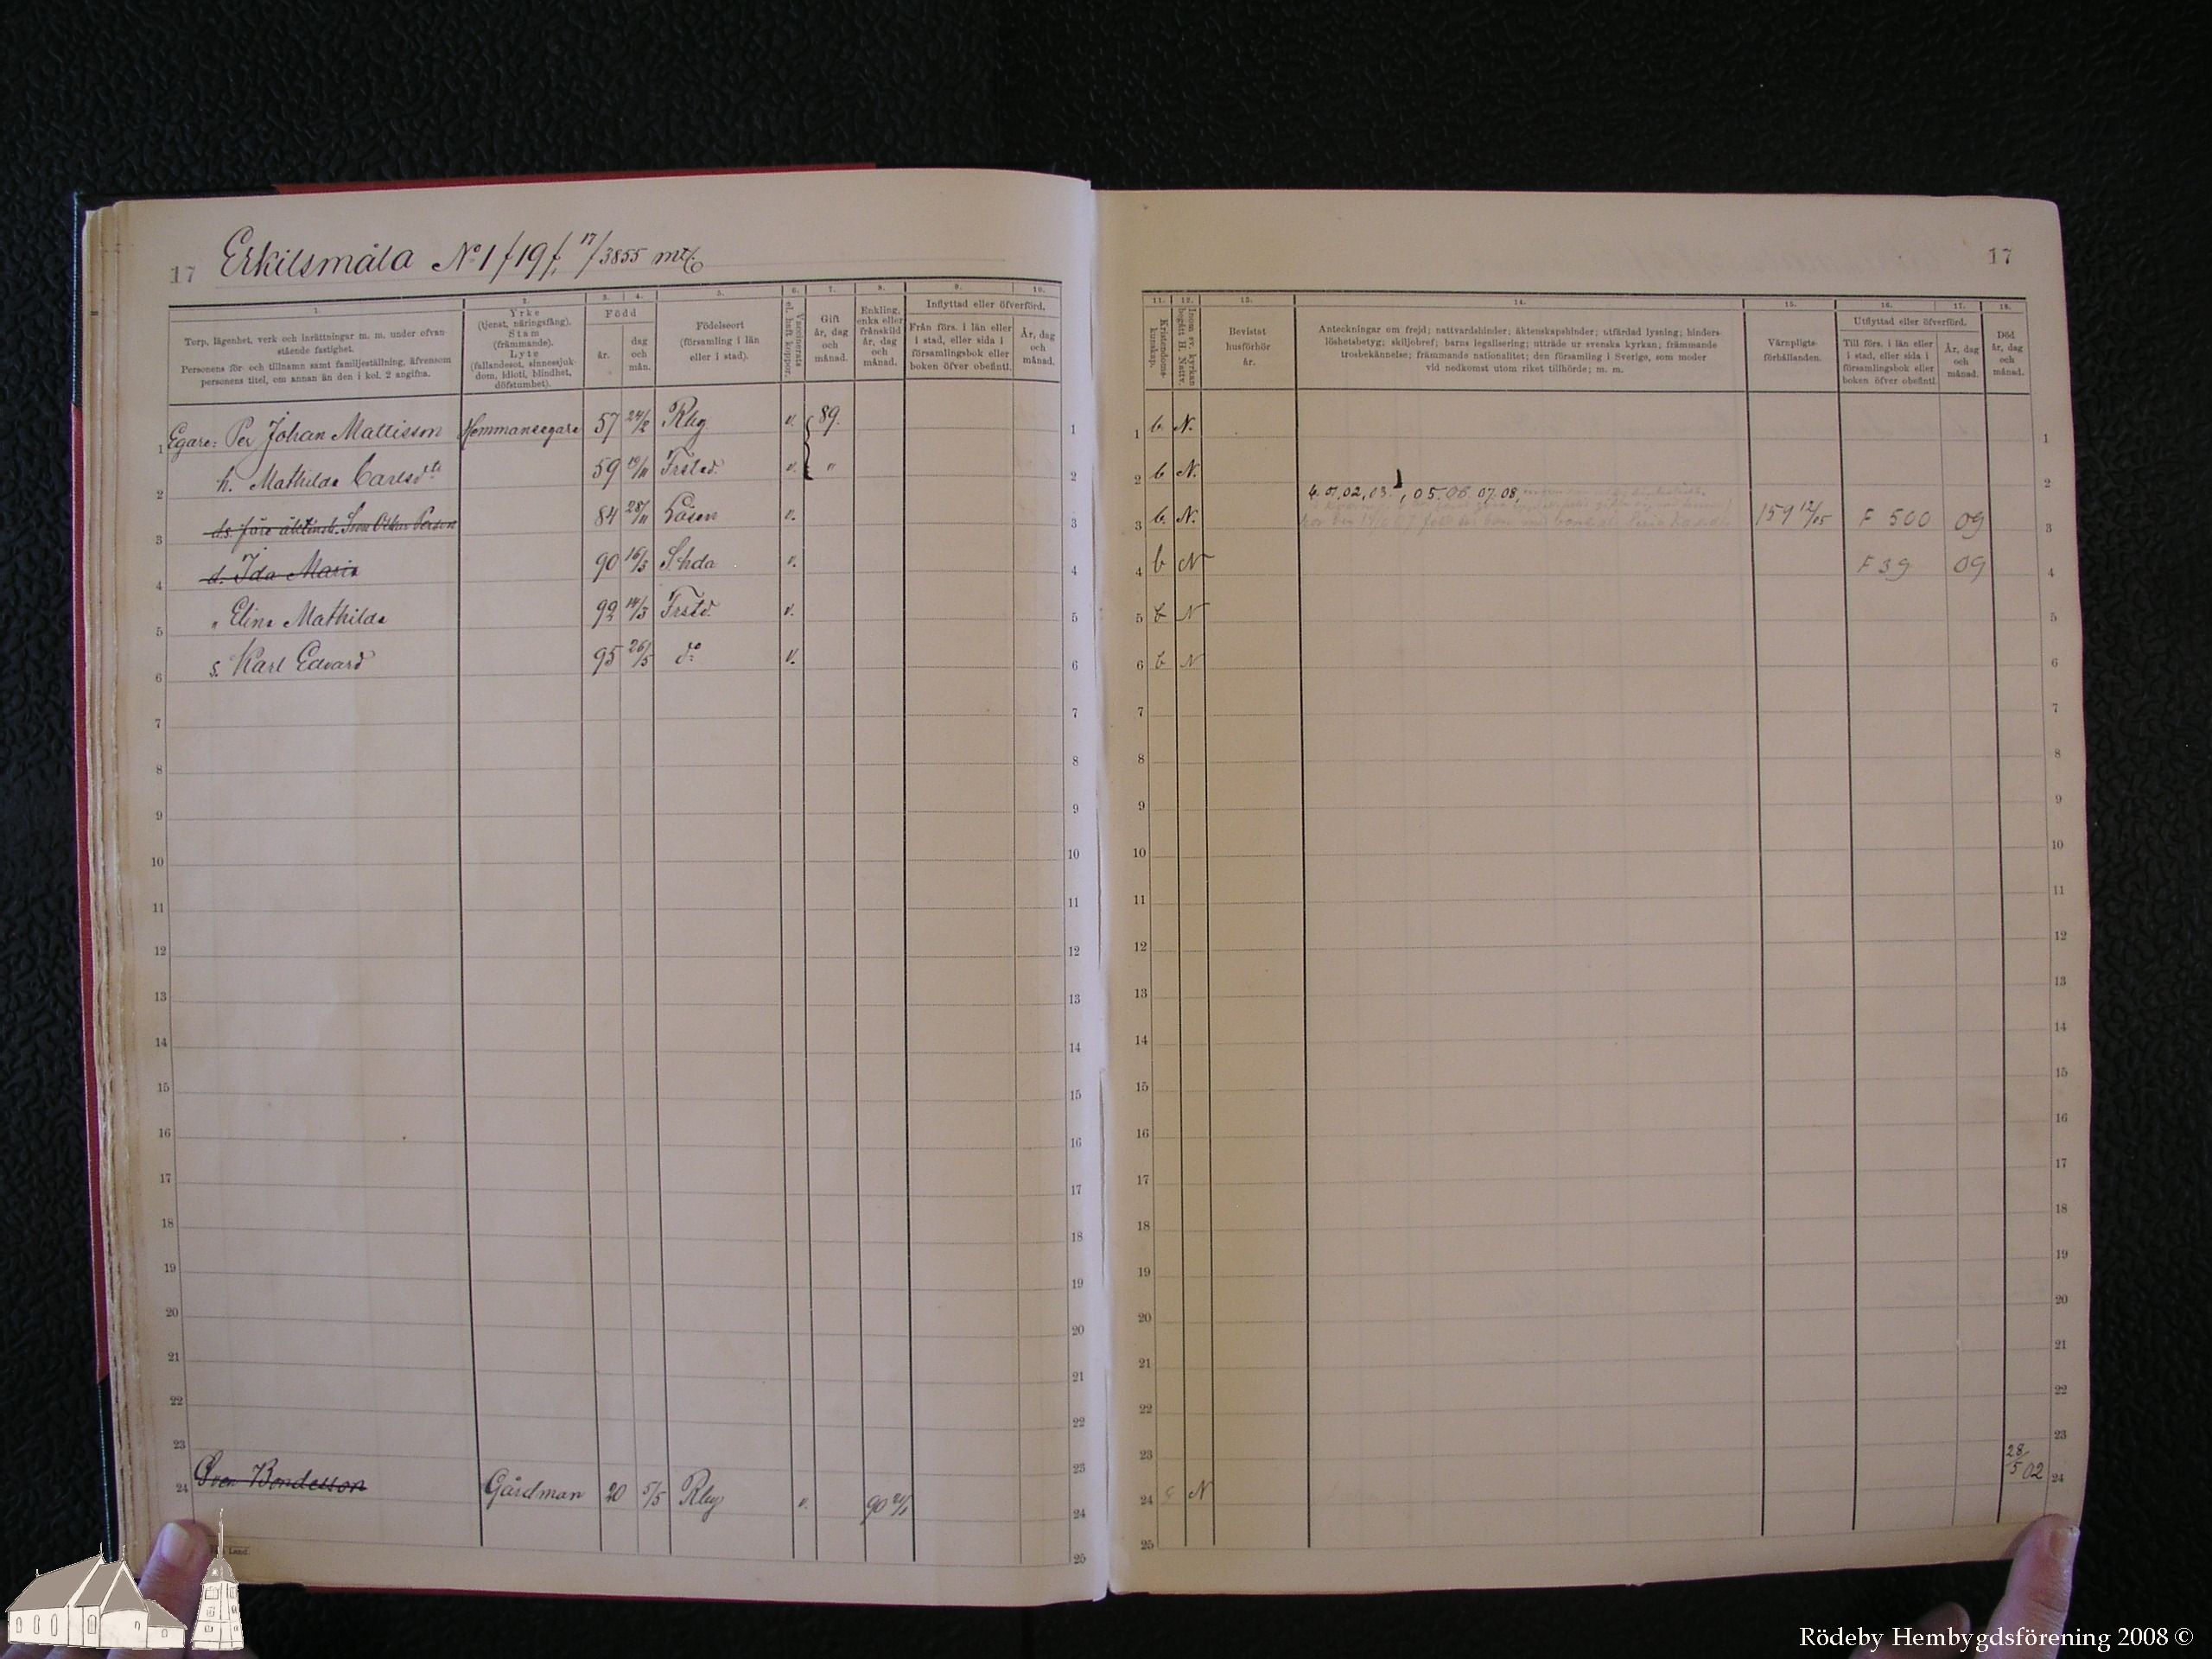 17 Erkilsmåla No 1 f 19 f, 17/3855 mtl
1. 2. 3. 4. 5. 6. 7. 8. 9. 10.
Torp, lägenhet, verk och inrättningar m. m. under ofvanstående fastighet.
Personens för- och tillnamn samt familjeställning, äfvensom personens titel, om annan än den i kol. 2 angifna.
Yrke (tjenst, näringsfång). Stam (främmande). Lyte (fallandesot, sinnessjukdom, idioti, blindhet, döfstumhet).
Född
år.
dag och mån.
Födelseort (församling i län eller i stad).
Vaccinerats el. haft koppor.
Gift år, dag och månad.
Enkling, enka eller frånskild år, dag och månad.
Inflyttad eller öfverförd.
Från förs. i län eller i stad, eller sida i församlingsbok eller boken öfver obefintl.
År, dag och månad.
1 Egare: Per Johan Mattisson Hemmansegare 57 24/2 Rby v. 89. 1
2 h. Mathilda Carlsdtr 59 19/11 Frstad. v. " 2
3 ds. före äktensk. Sven Oskar Person 84 28/11 Lösen v. 3
4 d. Ida Maria 90 16/3 v. 4
5 " Elina Mathilda 92 14/3 Frstd. v. 5
6 s. Karl Edvard 95 26/5 do v. 6
7 7
8 8
9 9
10 10
11 11
12 12
13 13
14 14
15 15
16 16
17 17
18 18
19 19
20 20
21 21
22 22
23 23
24 Sven Bondesson Gårdman 20 5/5 Rby v. 90 24
25
17
11. 12. 13. 14. 15. 16. 17. 18.
Kristendomskunskap.
Inom sv. kyrkan begått H. Nattv.
Bevistat husförhör år.
Anteckningar om frejd; nattvardshinder; äktenskapshinder; utfärdad lysning; hinderslöshetsbetyg; skiljobref; barns legalisering; utträde ur svenska kyrkan; främmande trosbekännelse; främmande nationalitet; den församling i Sverige, som moder vid nedkomst utom riket tillhörde; m. m.
Värnpligtsförhållanden.
Utflyttad eller öfverförd.
Till förs. i län eller i stad, eller sida i församlingsbok eller boken öfver obefintl.
År, dag och månad.
Död år, dag och månad.
1 b N. 1
2 b N. 2
3 b. N. 02, 03, 05. 06. 07. 08, 159 12/05 F 500 09 3
4 b N F 39 09 4
5 b N 5
6 b N 6
7 7
8 8
9 9
10 10
11 11
12 12
13 13
14 14
15 15
16 16
17 17
18 18
19 19
20 20
21 21
22 22
23 23
24 N 28/5 02 24
25
Rödeby Hembygdsförening 2008 ©